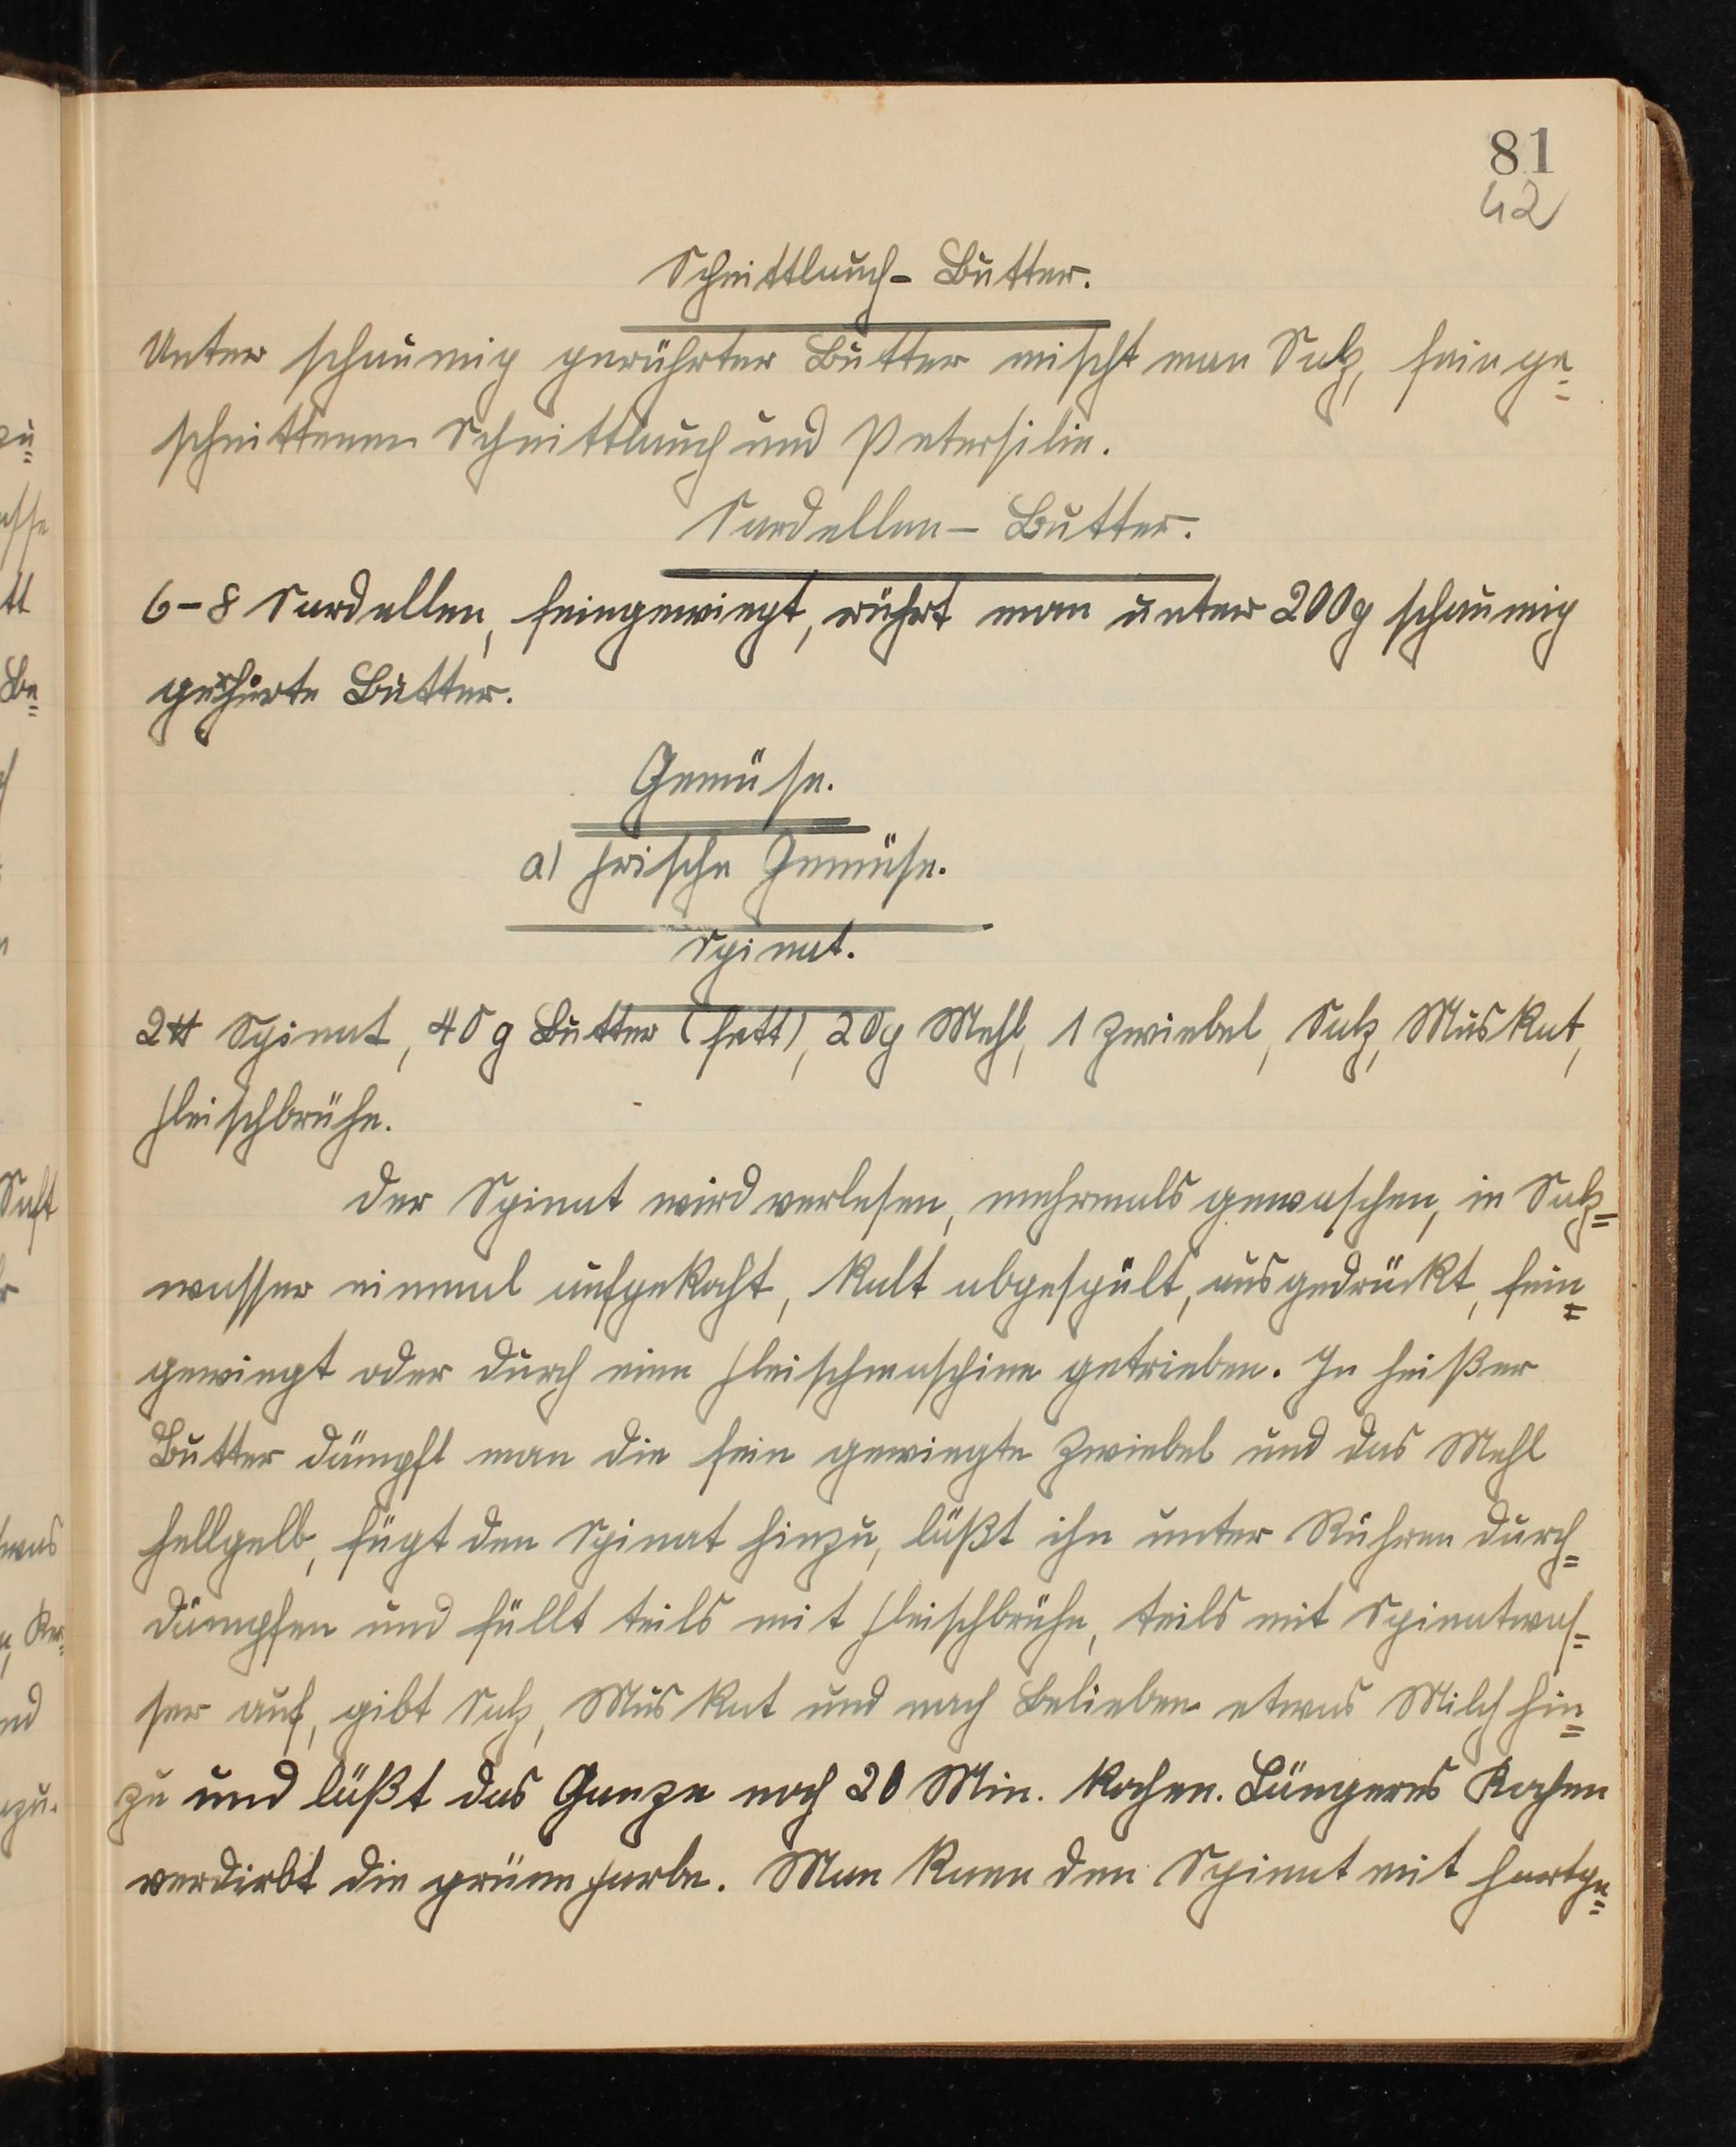 81
42
Schnittlauch- Butter.
Unter schaumig gerührter Butter mischt man Salz, fein ge=
schnittenen Schnittlauch und Petersilie.
Sardellen- Butter.
6-8 Sardellen, feingewiegt, rührt man unter 200g schaumig
gerührte Butter.
Gemüse.
a) frische Gemüse.
Spinat.
2 ℔ Spinat, 40 g Butter (Fett), 20g Mehl, 1 Zwiebel, Salz, Muskat,
Fleischbrühe.
Der Spinat wird verlesen, mehrmals gewaschen, in Salz=
wasser einmal aufgekocht, kalt abgespült, ausgedrückt, fein=
gewiegt oder durch eine Fleischmaschine getrieben. In heißer
Butter dämpft man die fein gewiegte Zwiebel und das Mehl
hellgelb, fügt den Spinat hinzu, läßt ihn unter Rühren durch=
dämpfen und füllt teils mit Fleischbrühe, teils mit Spinatwas=
ser auf, gibt Salz, Muskat und nach Belieben etwas Milch hin=
zu und läßt das Ganze noch 20 Min. kochen. Längeres Kochen
verdirbt die grüne Farbe. Man kann den Spinat mit hartge=